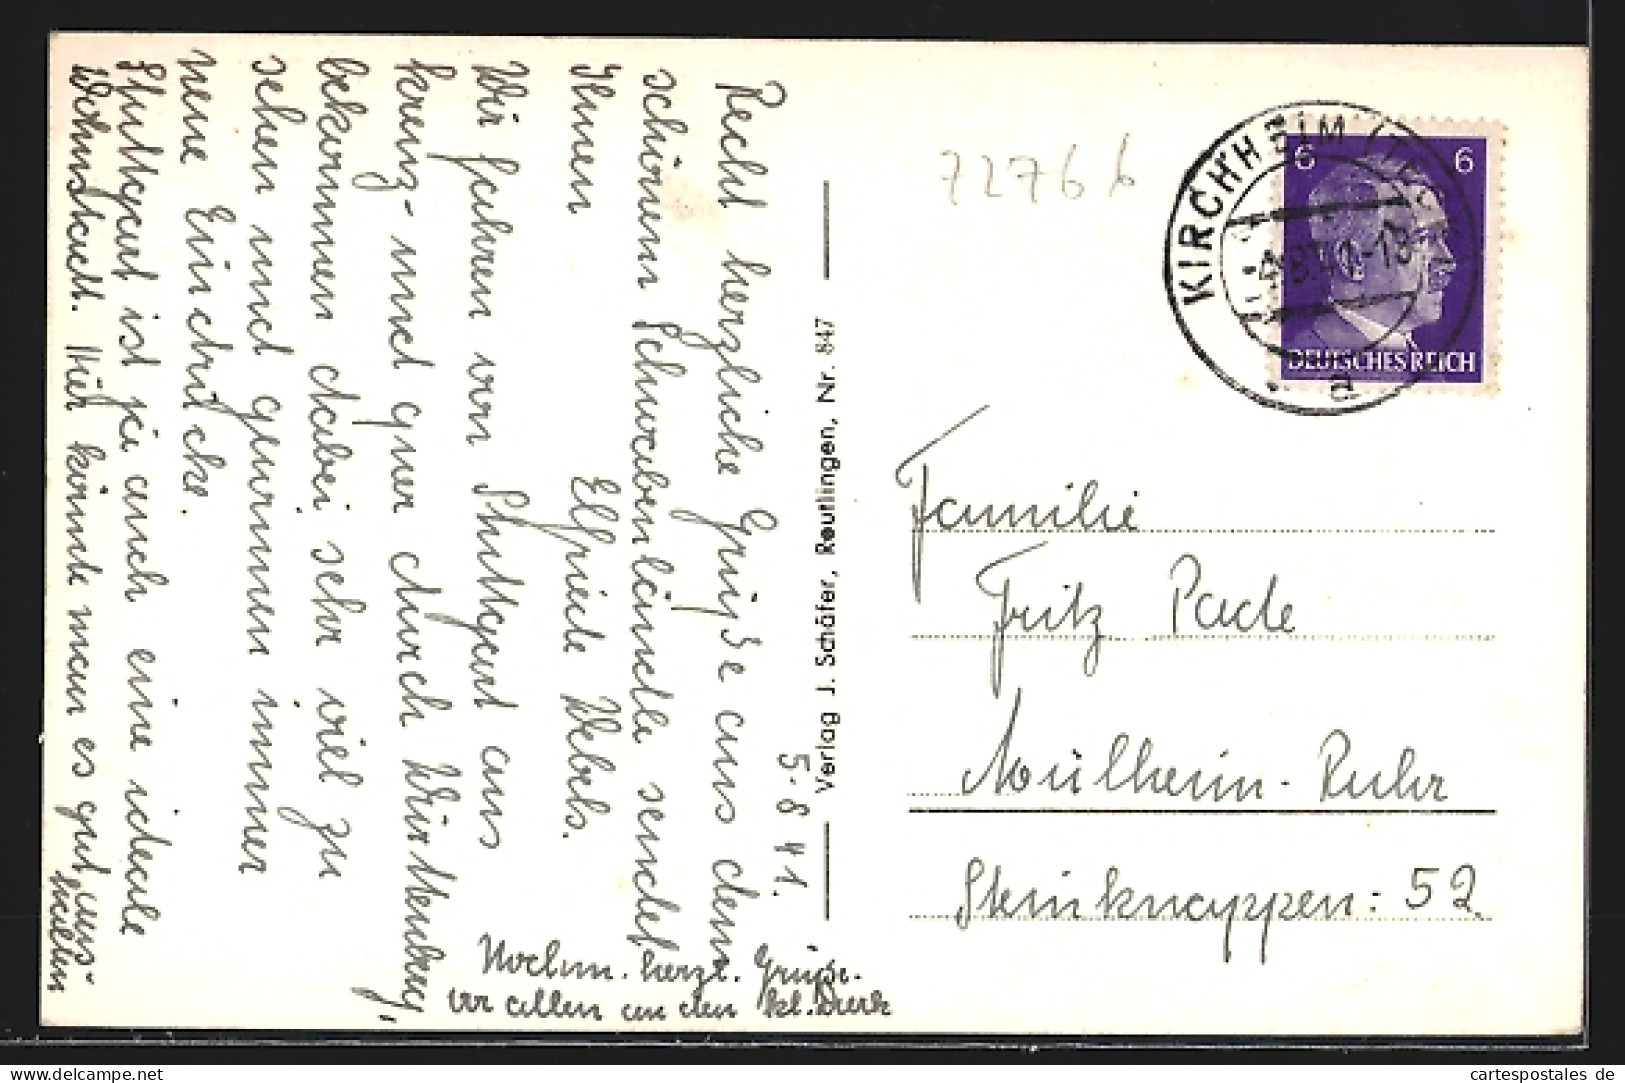 5. 8. 41.
Recht herzliche Grüße aus dem
schönen Schwabenländle sendet
Ihnen
Elfriede Webels.
Wir fahren von Stuttgart aus
kreuz- und quer durch Württemberg,
bekommen dabei sehr viel zu
sehen und gewinnen immer
neue Eindrücke.
Stuttgart ist ja auch eine ideale
Wohnstadt. Hier könnte man es gut aus-
halten
Nochm. herzl. Grüße.
vor allem an den kl.
Verlag J. Schäfer, Reutlingen, Nr. 847
72766
KIRCHHEIM (TECK)
4.8.41.-18
a
6 6
DEUTSCHES REICH
Familie
Fritz Pade
Mülheim-Ruhr
Steinknappen: 52.
cartespostales.de
www.cartespostales.de